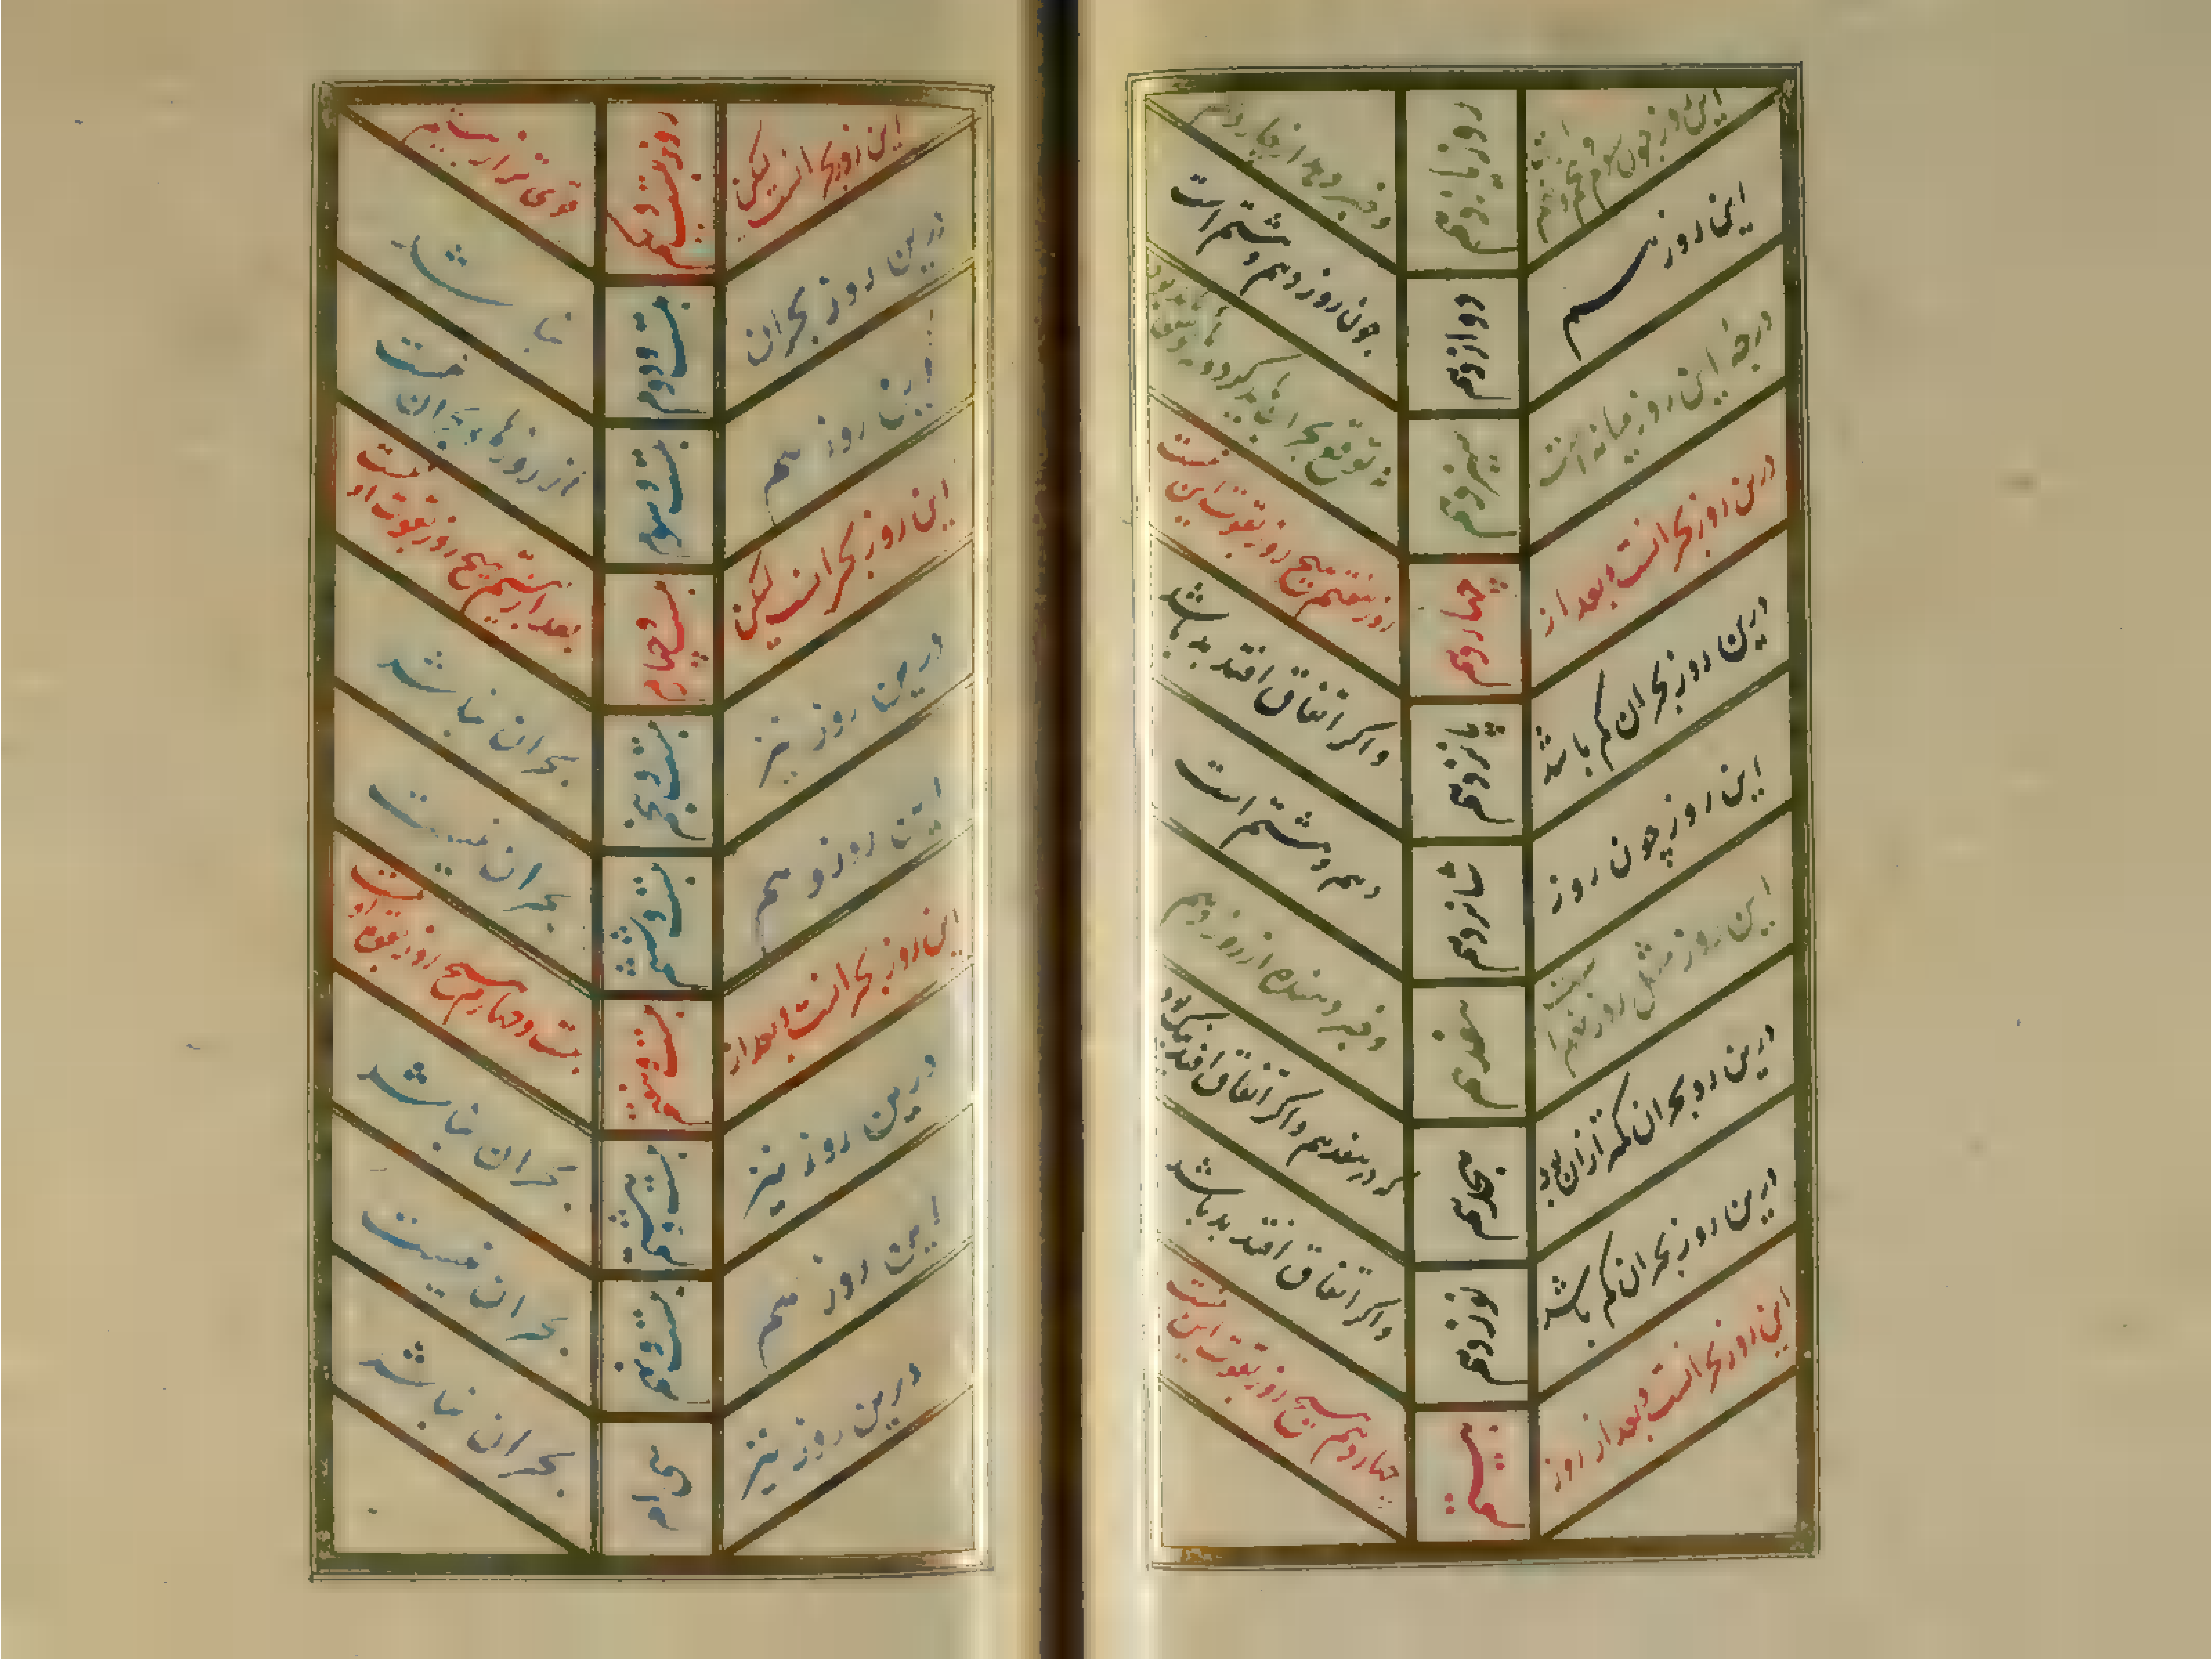 روز یازدهم
این روز چون سوم و پنجم و نهم
و خبر دهد از چهاردهم
این روز هم
دوازدهم
چون روز دهم و هشتم است
درجهٔ این روز میانه است
سیزدهم
نه توقع بحران باید کرد و نه
درین روز بحرانست و بعد از
چهاردهم
روز هفتم هیچ روز بقوت این نیست
درین روز بحران کم باشد
پانزدهم
واکر اتفاق افتد بد باشد
این روز چون روز
شانزدهم
دهم و هشتم است
این روز مثل روز
هفدهم
و خبر دهنده از روز
درین روز بحران کمتر از آن بود
هجدهم
که در هفدهم واکر اتفاق افتد
درین روز بحران کم باشد
نوزدهم
واکر اتفاق افتد بد باشد
این روز بحرانست و بعد از روز
بیستم
چهاردهم هیچ روز بقوت این نیست
این روز بحرانست لیکن
روز بیست و یکم
قوی‌تر از بیستم
درین روز بحران
بیست و دوم
نباشد
این روز هم
بیست و سوم
از روزهای بحران نیست
این روز بحرانست لیکن
بیست و چهارم
بعد از بیستم هیچ روز بقوت او نیست
درین روز نیز
بیست و پنجم
بحران نباشد
این روز هم
بیست و ششم
بحران نیست
این روز بحرانست و بعد از
بیست و هفتم
بیست و چهارم هیچ روز بقوت او نیست
درین روز نیز
بیست و هشتم
بحران نباشد
این روز هم
بیست و نهم
بحران نیست
درین روز نیز
سی ام
بحران نباشد